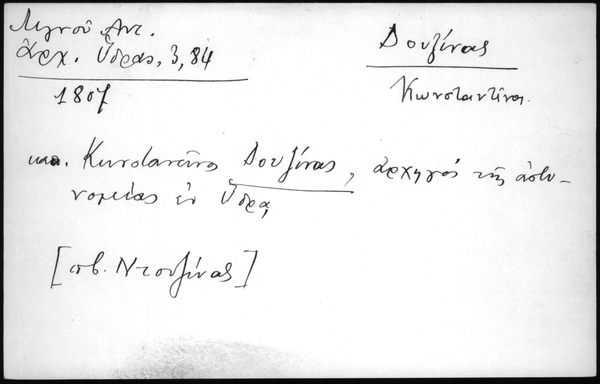 Λιγνοῦ Ἀντ.
ἀρχ. Ὕδρας, 3, 84
1807
Δουζίνας
Κωνσταντῖνος
καπ. Κωνσταντῖνος Δουζίνας, ἀρχηγός τῆς ἀστυ-
νομίας ἐν Ὕδρᾳ
[πβ. Ντουζίνας]